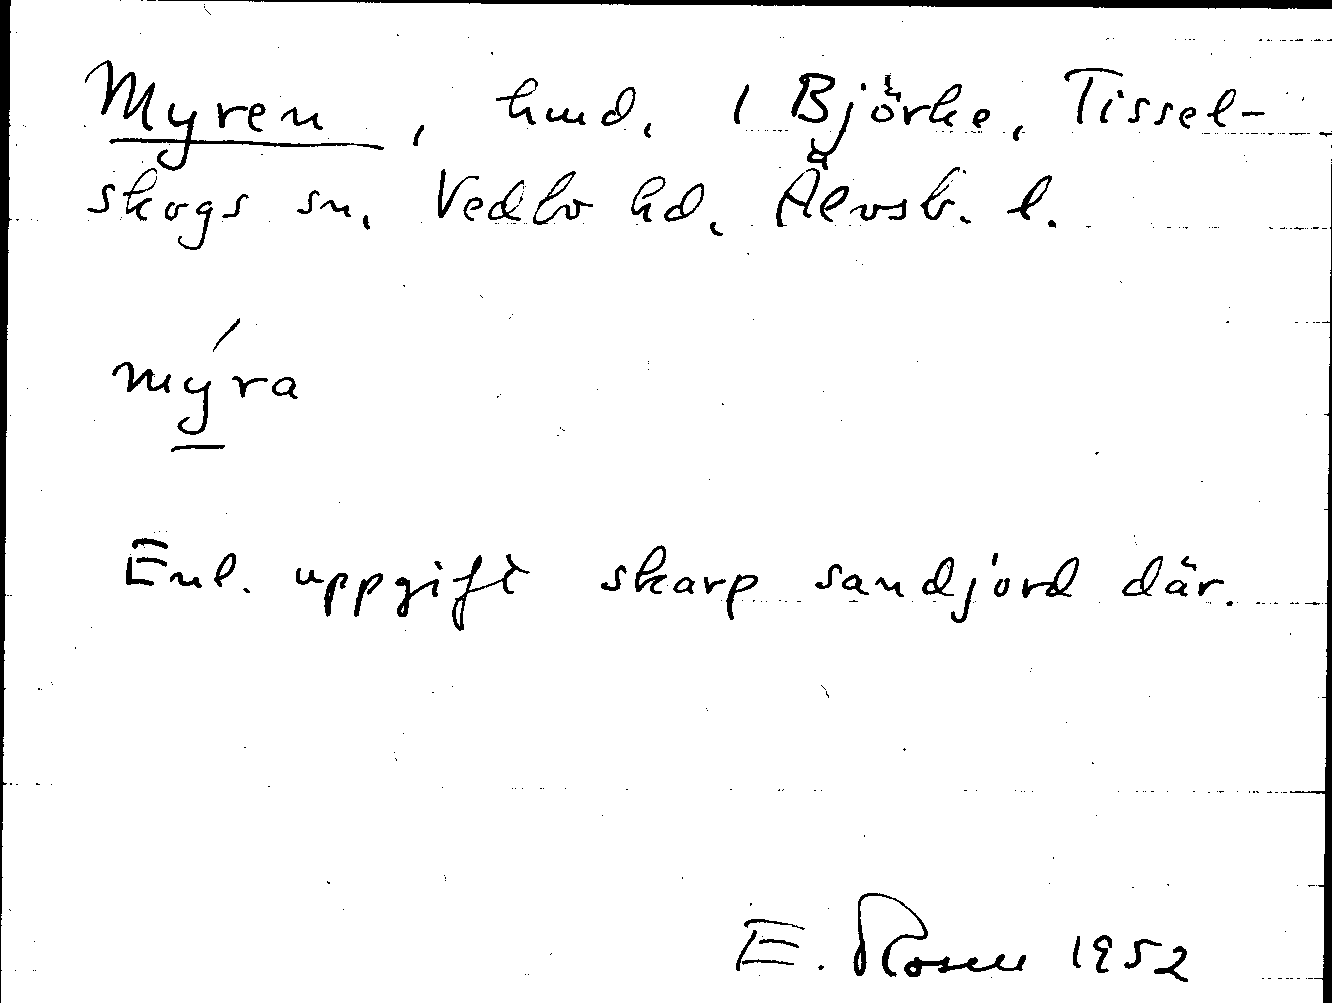 Myren, hmd. 1 Björke, Tissel-
skogs sn. Vedbo hd. Älvsb. l.
mýra
Enl. uppgift skarp sandjord där.
E. Rosen 1952